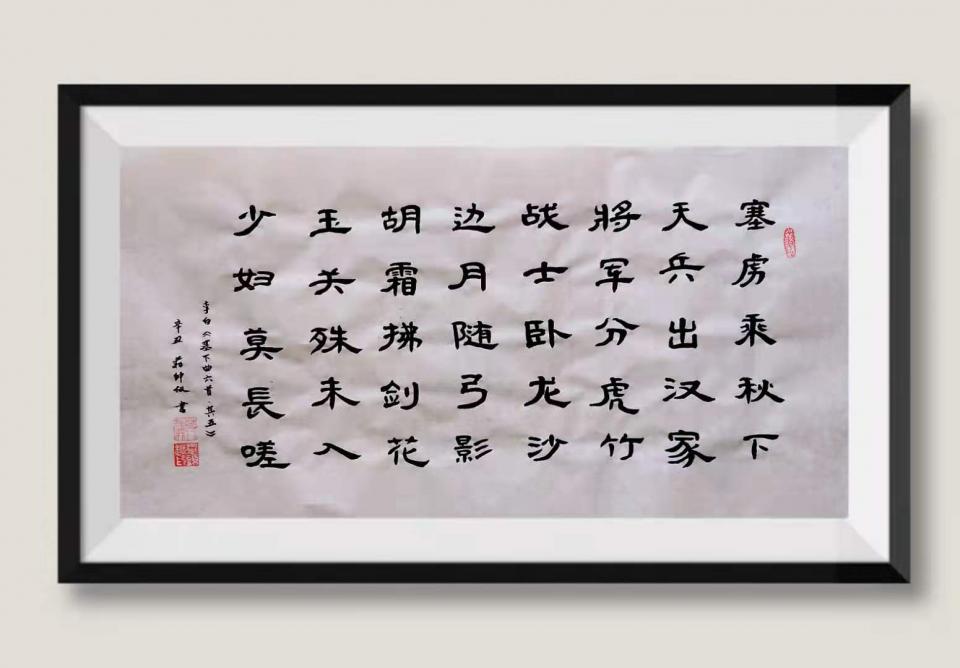 塞虏乘秋下
天兵出汉家
將军分虎竹
战士卧龙沙
边月随弓影
胡霜拂剑花
玉关殊未入
少妇莫長嗟
李白《塞下曲六首·其五》
辛丑 蒋仲仪 書